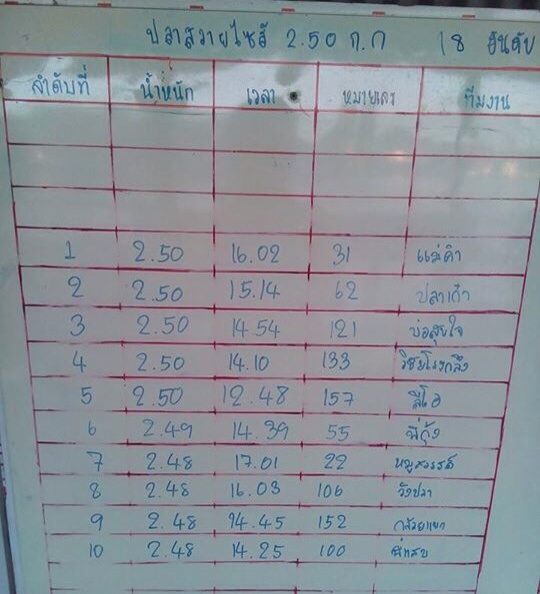 ปลาสวายไซส์ 2.50 ก.ก 18 อันดับ
ลำดับที่ น้ำหนัก เวลา หมายเลข ทีมงาน
1 2.50 16.02 31 แม่ค้า
2 2.50 15.14 62 ปลาเก๋า
3 2.50 14.54 121 บ่อสุขใจ
4 2.50 14.10 133 วิชัยโรงกลึง
5 2.50 12.48 157 สีโอ
6 2.49 14.39 55 พี่กุ้ง
7 2.48 17.01 22
8 2.48 16.03 106 วังปลา
9 2.48 14.45 152 กล้วยแขก
10 2.48 14.25 100